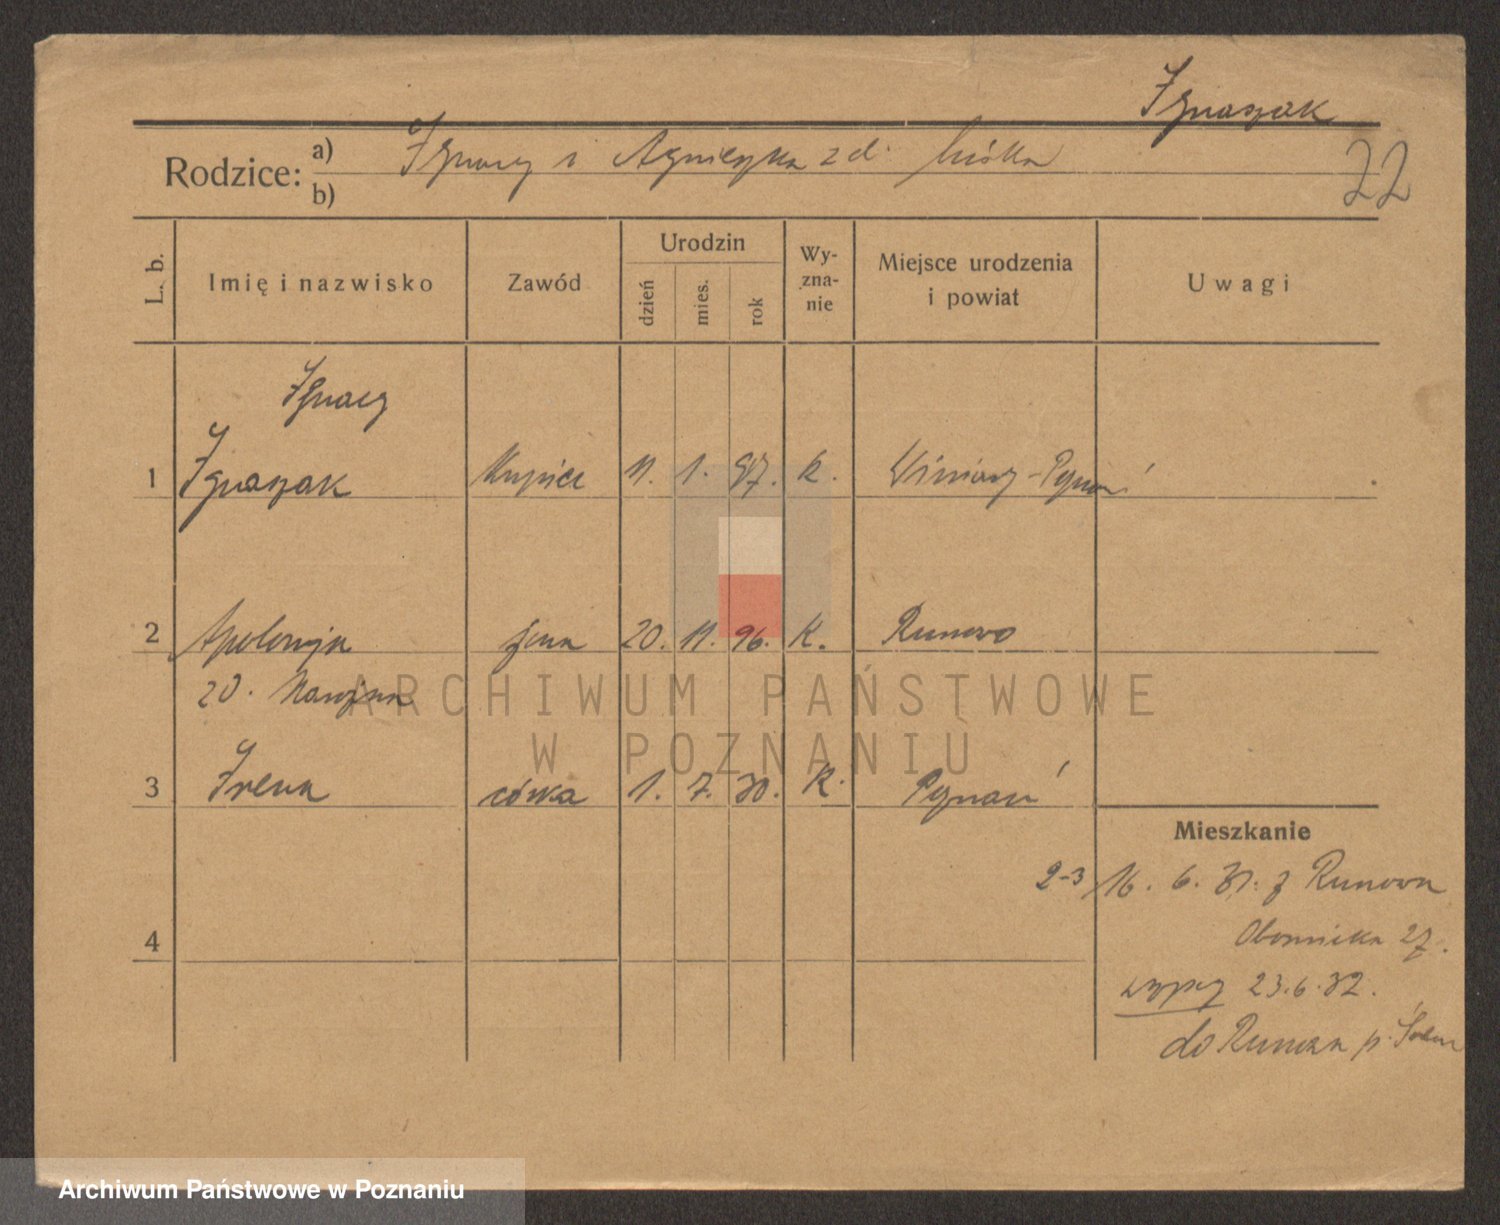 Ignaszak
Rodzice: a) Ignacy i Agnieszka zd.
b)
22
L. b. Imię i nazwisko Zawód Urodzin dzień mies. rok Wy-zna-nie Miejsce urodzenia i powiat Uwagi
Ignacy
1 Ignaszak Kupiec 11. 1. 97. K. Winiary-Poznań
2 Apolonja żona 20. 11. 96. K. Runowo
zd.
3 Irena córka 1. 7. 30. K. Poznań
Mieszkanie
2-3 16. 6. 31. z Runowa
Obornicka 27.
4
23.6.32.
do Runowa p. Śrem
ARCHIWUM PAŃSTWOWE
W POZNANIU
Archiwum Państwowe w Poznaniu